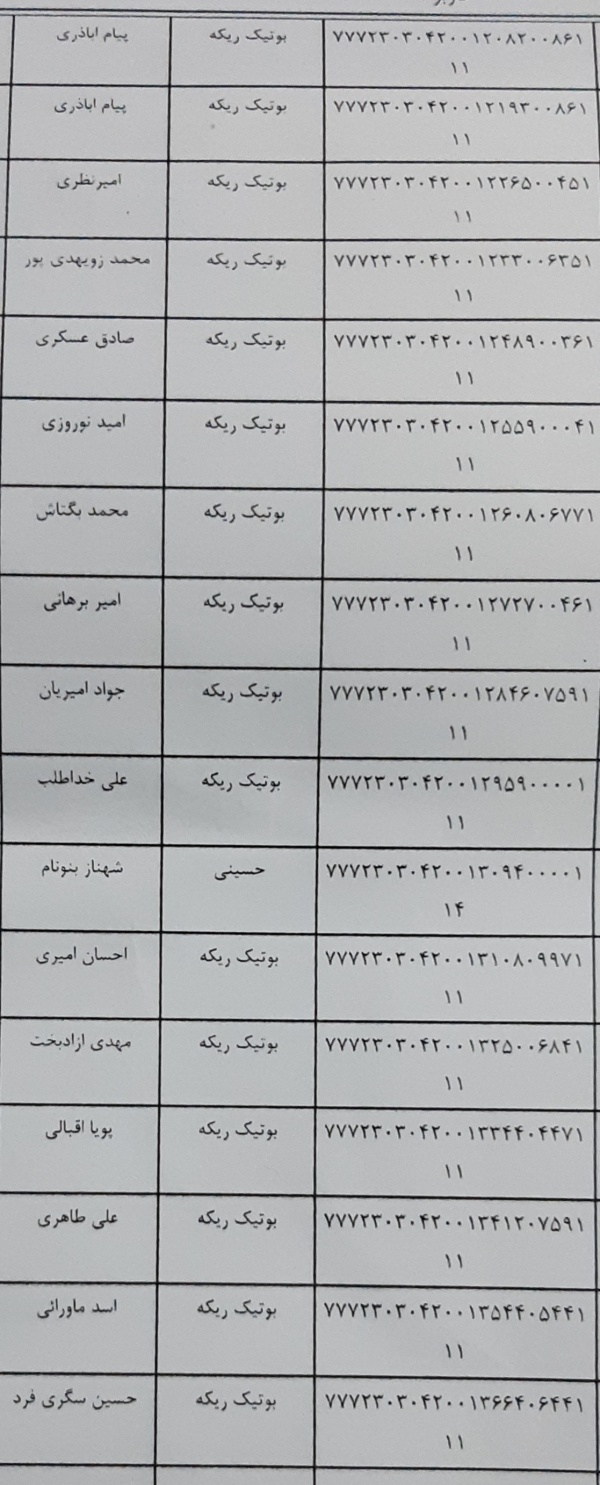 ۷۷۷۲۳۰۳۰۴۲۰۰۱۲۰۸۲۰۰۸۶۱ بوتیک ریکه پیام اباذری
۱۱
۷۷۷۲۳۰۳۰۴۲۰۰۱۲۱۹۳۰۰۸۶۱ بوتیک ریکه پیام اباذری
۱۱
۷۷۷۲۳۰۳۰۴۲۰۰۱۲۲۶۵۰۰۴۵۱ بوتیک ریکه امیرنظری
۱۱
۷۷۷۲۳۰۳۰۴۲۰۰۱۲۳۳۰۰۶۳۵۱ بوتیک ریکه محمد زویهدی پور
۱۱
۷۷۷۲۳۰۳۰۴۲۰۰۱۲۴۸۹۰۰۳۶۱ بوتیک ریکه صادق عسکری
۱۱
۷۷۷۲۳۰۳۰۴۲۰۰۱۲۵۵۹۰۰۰۴۱ بوتیک ریکه امید نوروزی
۱۱
۷۷۷۲۳۰۳۰۴۲۰۰۱۲۶۰۸۰۶۷۷۱ بوتیک ریکه محمد بگتاش
۱۱
۷۷۷۲۳۰۳۰۴۲۰۰۱۲۷۲۷۰۰۴۶۱ بوتیک ریکه امیر برهانی
۱۱
۷۷۷۲۳۰۳۰۴۲۰۰۱۲۸۴۶۰۷۵۹۱ بوتیک ریکه جواد امیریان
۱۱
۷۷۷۲۳۰۳۰۴۲۰۰۱۲۹۵۹۰۰۰۰۱ بوتیک ریکه علی خداطلب
۱۱
۷۷۷۲۳۰۳۰۴۲۰۰۱۳۰۹۴۰۰۰۰۱ حسینی شهناز بنونام
۱۴
۷۷۷۲۳۰۳۰۴۲۰۰۱۳۱۰۸۰۹۹۷۱ بوتیک ریکه احسان امیری
۱۱
۷۷۷۲۳۰۳۰۴۲۰۰۱۳۲۵۰۰۶۸۴۱ بوتیک ریکه مهدی ازادبخت
۱۱
۷۷۷۲۳۰۳۰۴۲۰۰۱۳۳۴۴۰۴۴۷۱ بوتیک ریکه پویا اقبالی
۱۱
۷۷۷۲۳۰۳۰۴۲۰۰۱۳۴۱۲۰۷۵۹۱ بوتیک ریکه علی طاهری
۱۱
۷۷۷۲۳۰۳۰۴۲۰۰۱۳۵۴۴۰۵۴۴۱ بوتیک ریکه اسد ماورائی
۱۱
۷۷۷۲۳۰۳۰۴۲۰۰۱۳۶۶۴۰۶۴۴۱ بوتیک ریکه حسین سگری فرد
۱۱